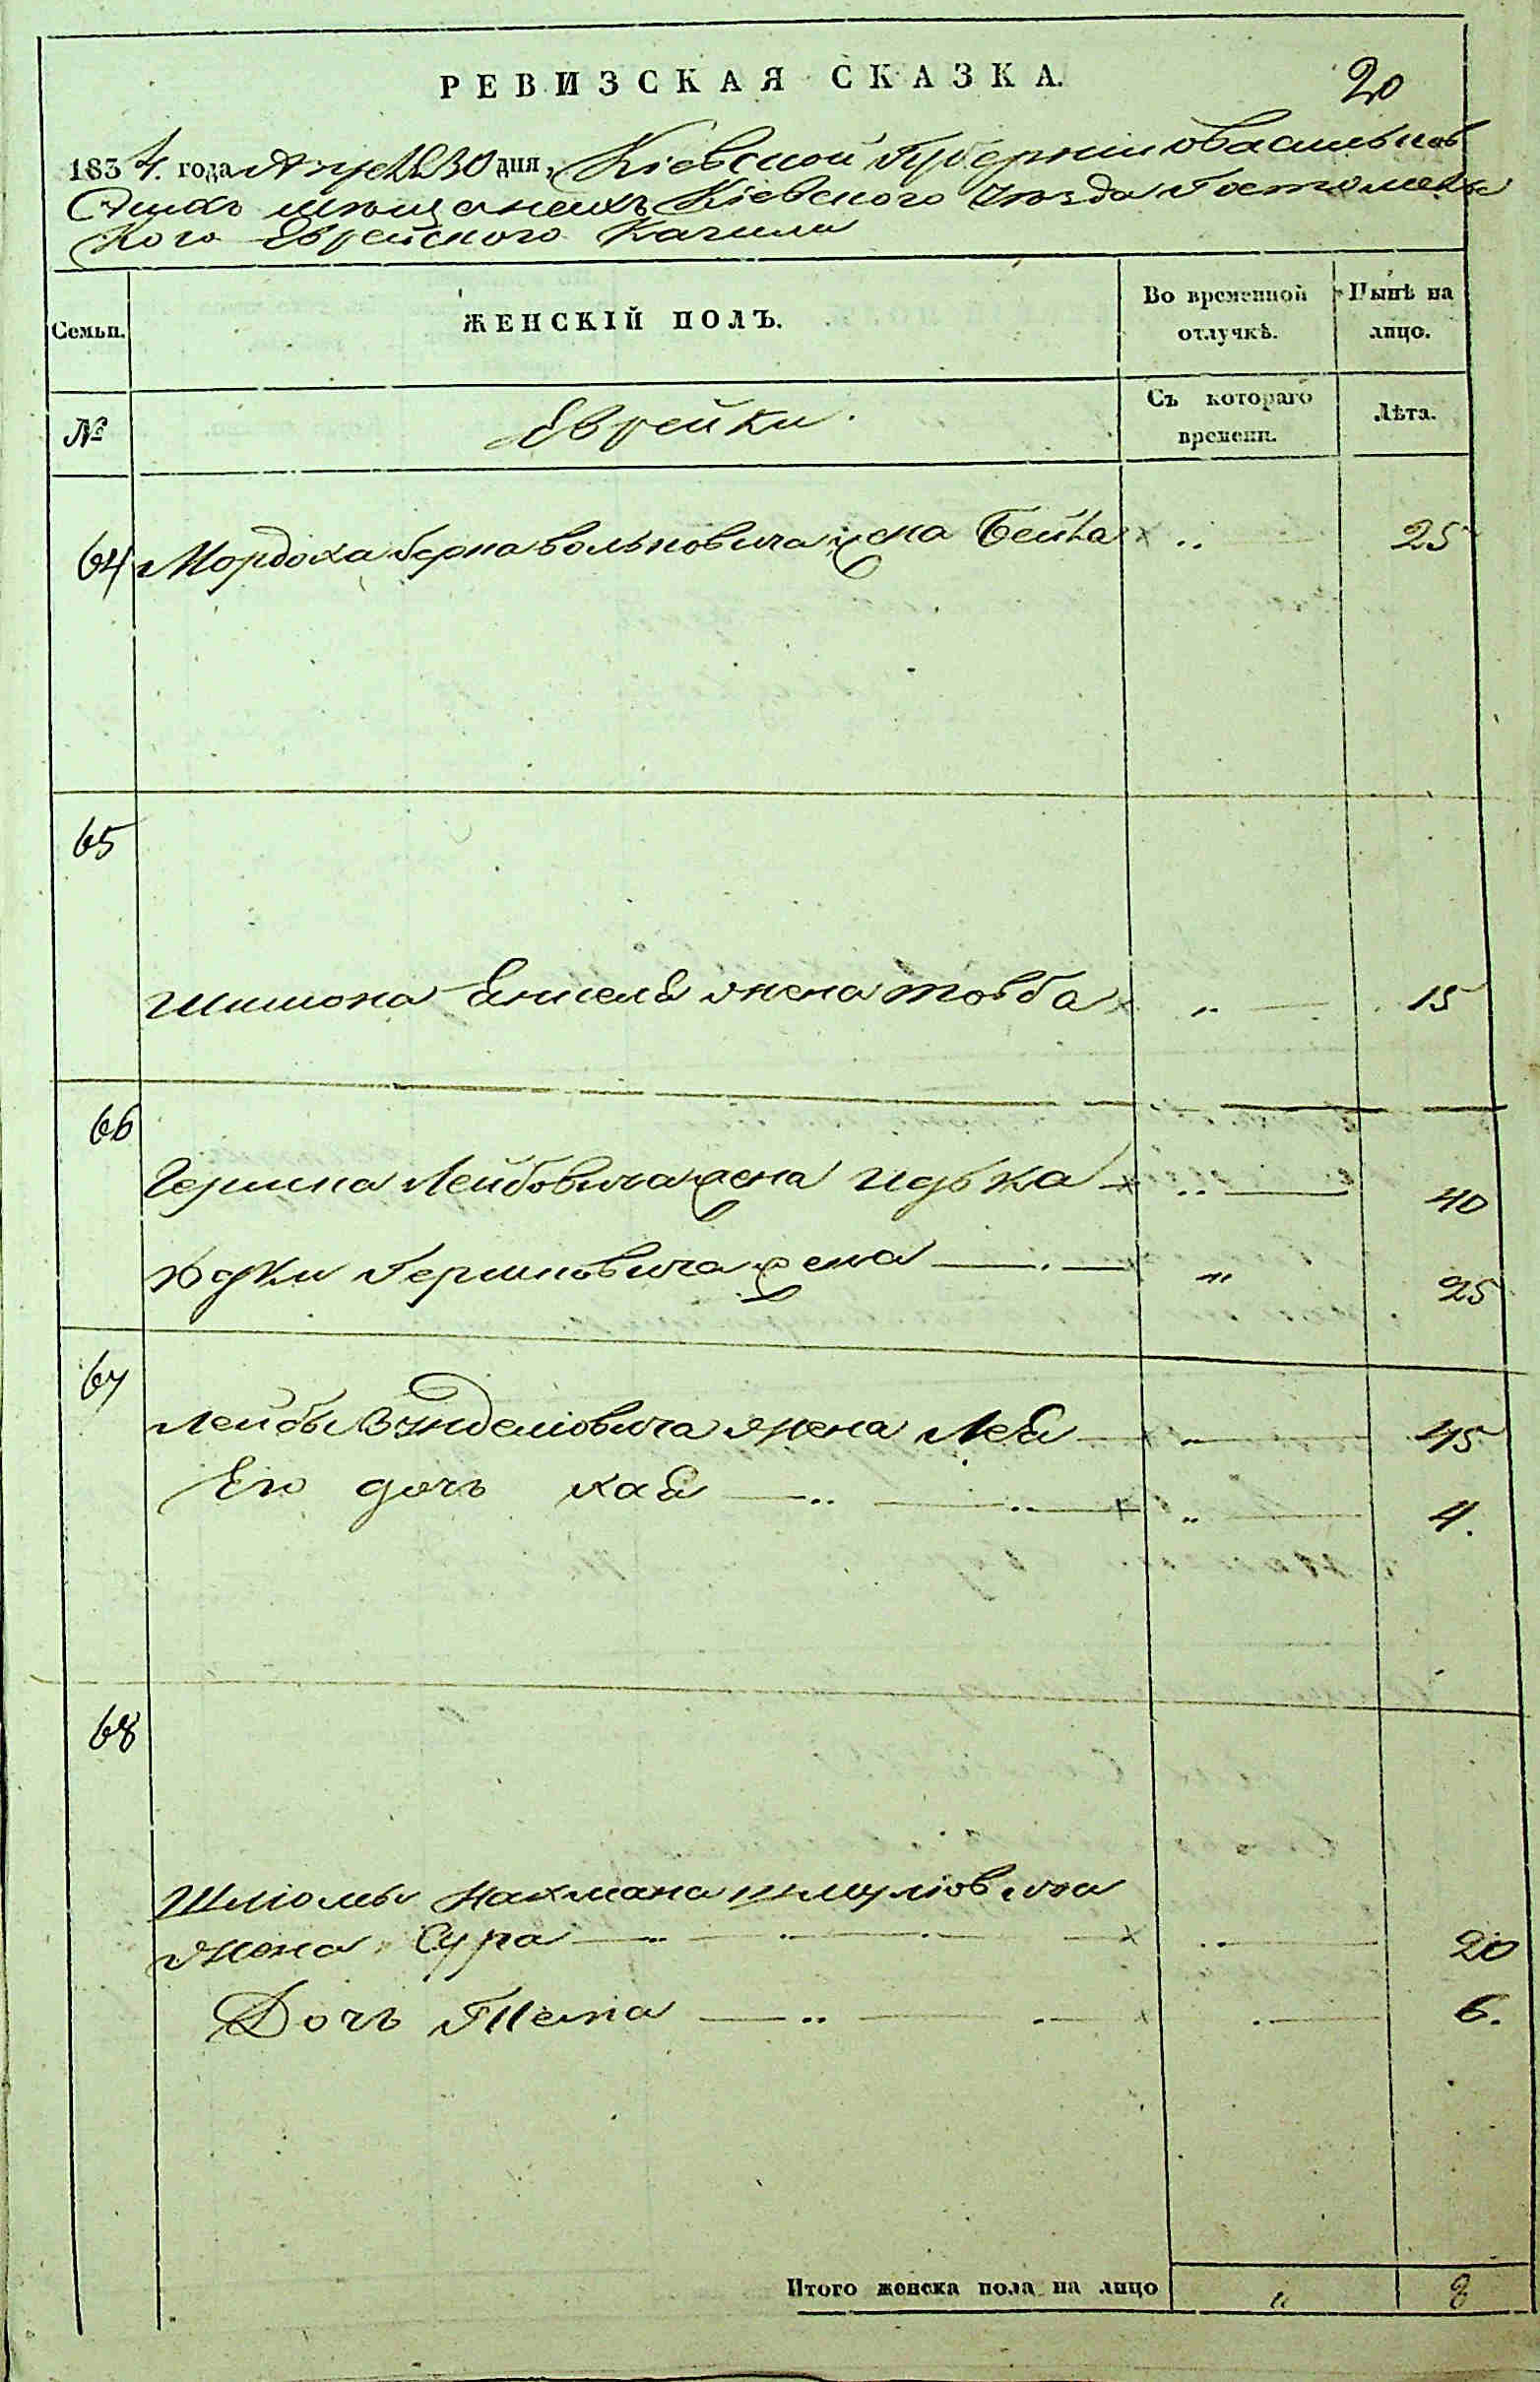 РЕВИЗСКАЯ СКАЗКА.
20
1834. года Апреля 30 дня, Кіевской Губерніи о Васильков
скихъ мещанехъ Кіевского уезда Гостомель
кого Еврейского Кагила
Семьи.
ЖЕНСКІЙ ПОЛЪ.
Во временной отлучкѣ.
Нынѣ на лицо.
№
Еврейки.
Съ котораго времени.
Лѣта.
64 Мордоха Берка Вольковича жена Бейла 25
65
Шимона жена Товба 15
66
Гершка Лейбовича жена Идька 40
Юдки Гершковича жена 25
67
Лейбы жена Лея 45
Его дочь Хая 4.
68
Шліомы Нахмана Шмуліовича
жена Сура 20
Дочь 6.
Итого женска пола на лицо 8